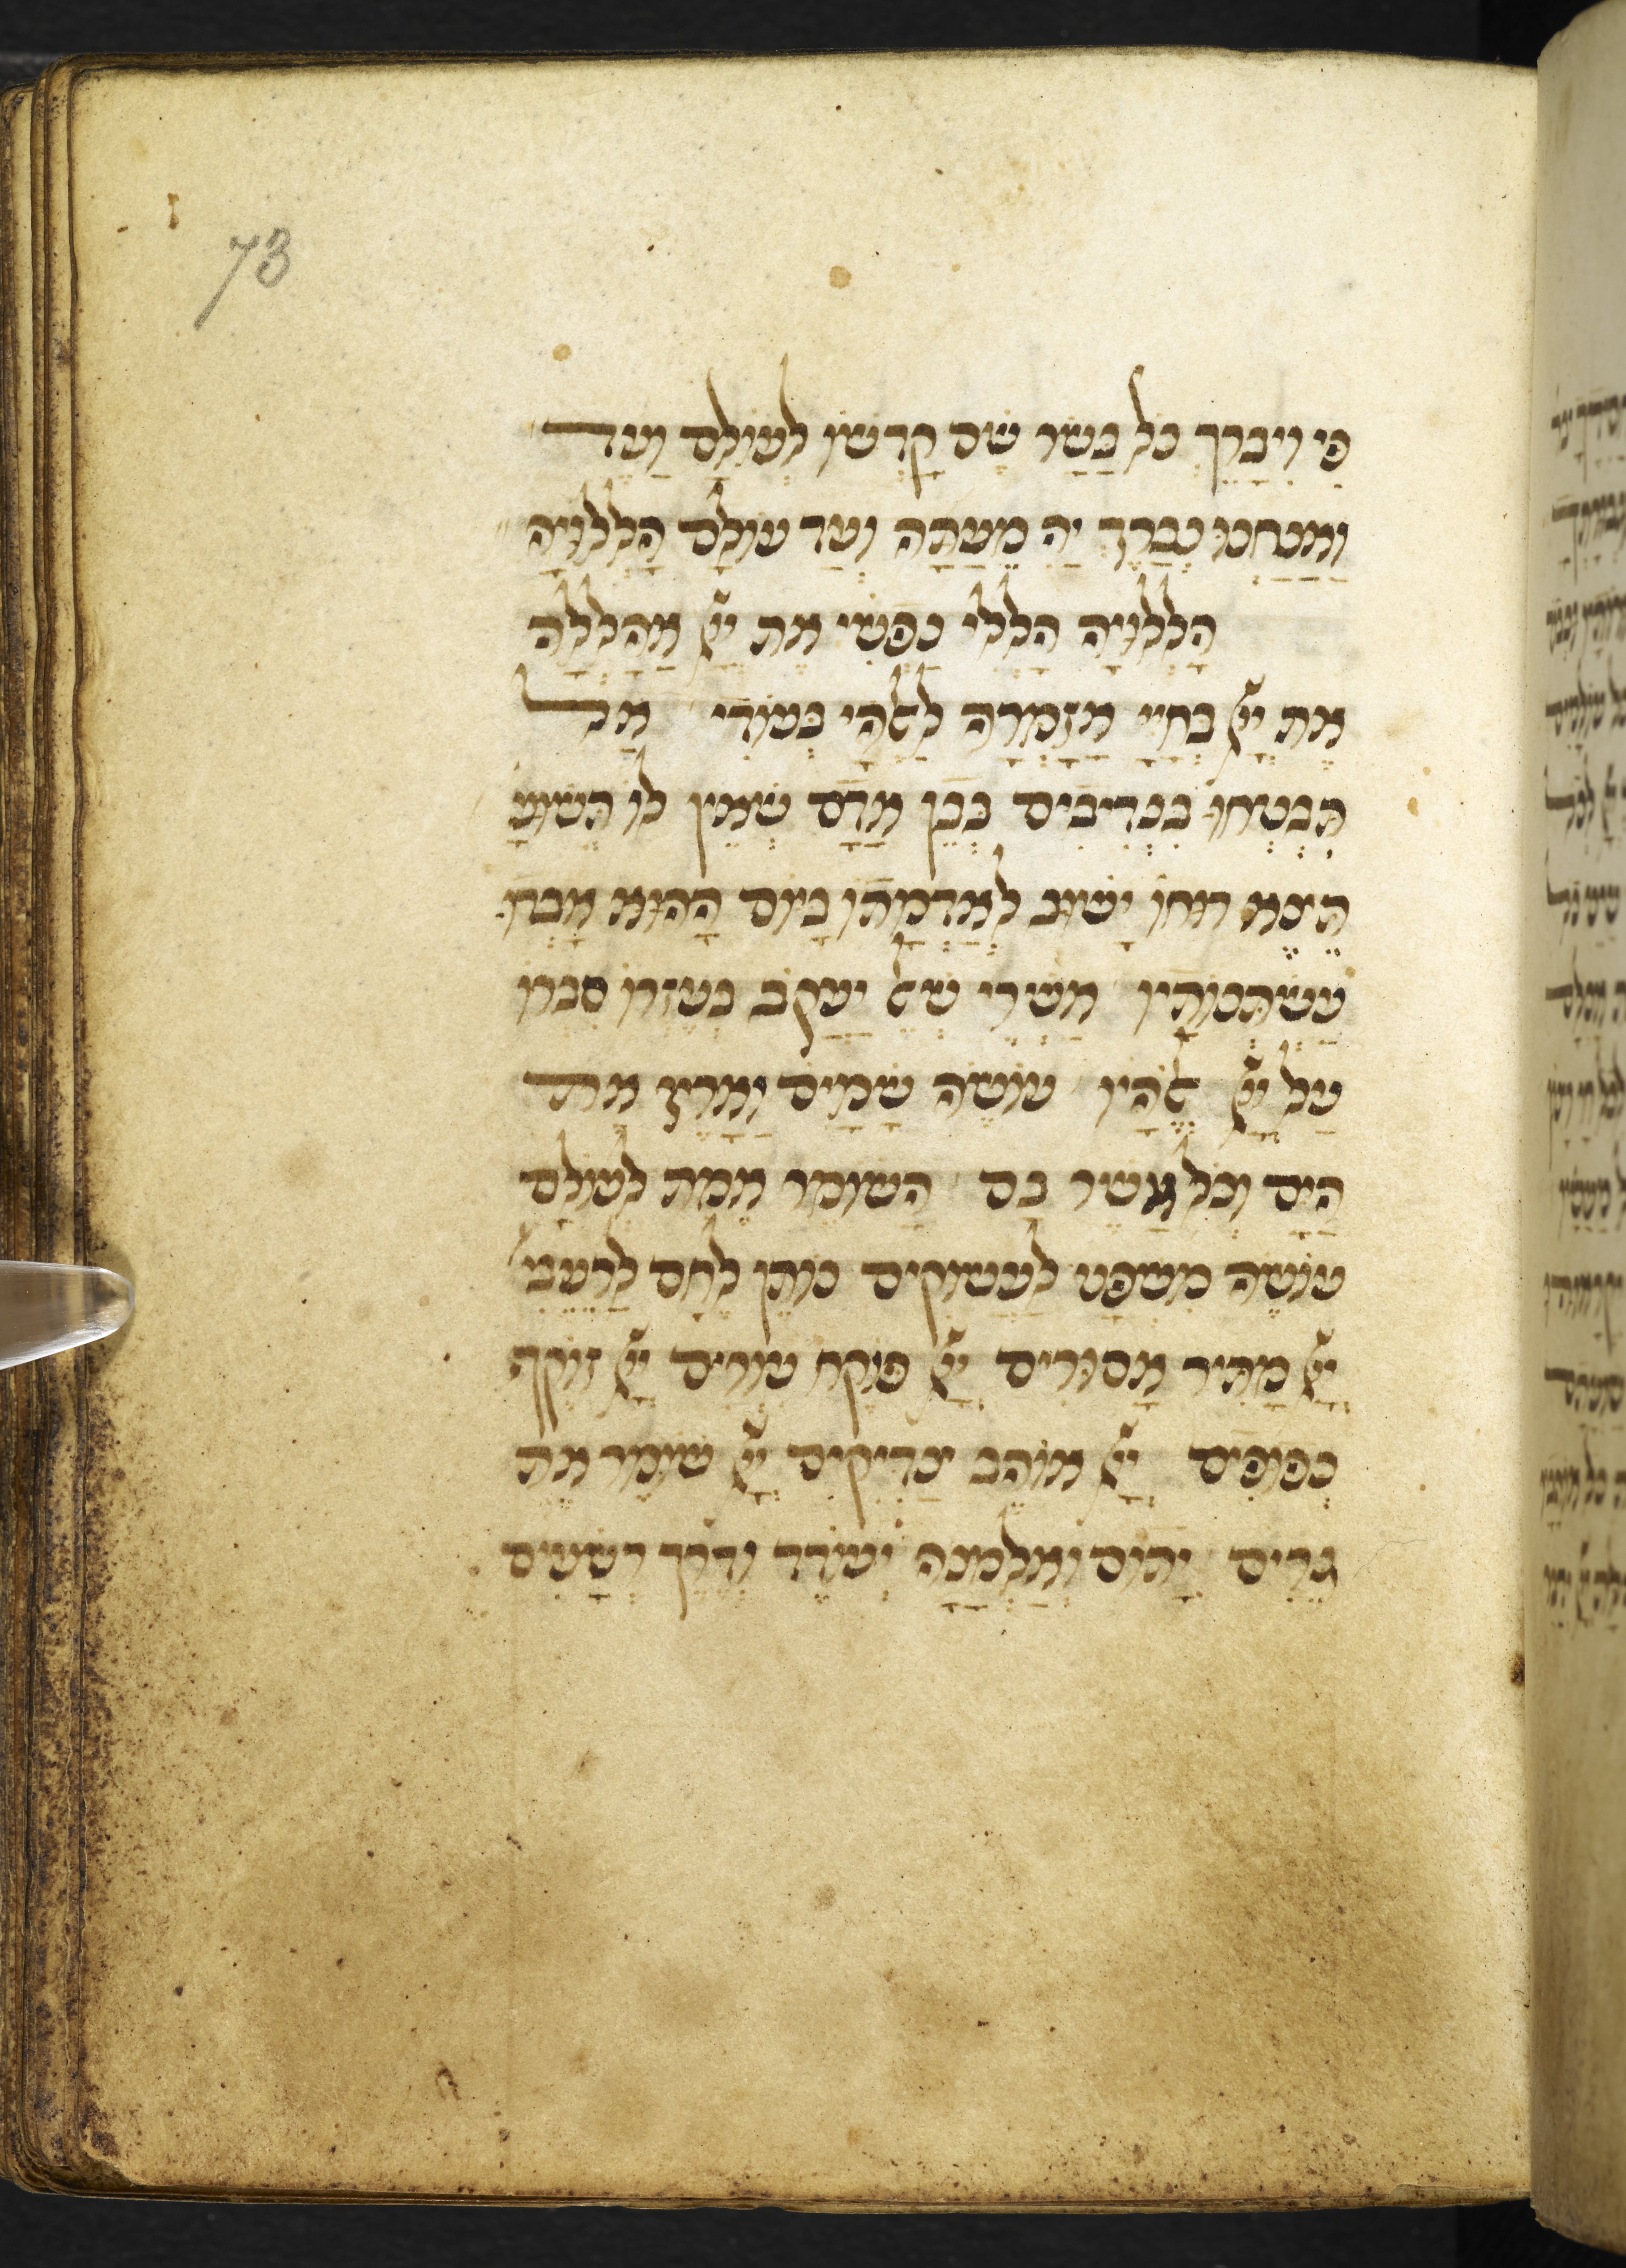 73
פִי וִיבָרֵךְ כֹל בַשַר שֵם קָדְשוֹ לְעוֹלָם וָעֶד
וַאֲנַחְנוּ נְבָרֵךְ יַה מֵעַתָה וְעַד עוֹלָם הַלְלוּיָה
הַלְלוּיָה הַלְלִי נַפְשִי אֶת יְיָ אֲהַלְלָה
אֶת יְיָ בְחַיַי אֲזַמְרָה לֵאלֹהַי בְעוֹדִי אַל
תִבְטְחוּ בִנְדִיבִים בְבֶן אָדָם שְאֵין לוֹ תְשוּעָ
תֵיצֵא רוּחוֹ יָשוּב לְאַדְמָתוֹ בָיוֹם הַהוּא אָבְדוּ
עֶשְתֹנוֹתָיו אַשְרֵי שֶאֵל יַעֲקֹב בְעֶזְרוֹ סִבְרוֹ
עַל יְיָ אֱלֹהָיו עוֹשֶה שָמַיִם וָאָרֶץ אֶת
הַיָם וְכָל אֲשֶר בָם הַשוֹמֵר אֱמֶת לְעוֹלָם
עוֹשֶה מִשְפָט לַעֲשוּקִים נוֹתֵן לֶחֶם לָרְעֵבִ
יְיָ מַתִיר אֲסוּרִים יְיָ פוֹקֵחַ עִוְרִים יְיָ זוֹקֵף
כְפוּפִים יְיָ אוֹהֵב צַדִיקִים יְיָ שוֹמֵר אֶת
גֵרִים יָתוֹם וְאַלְמָנָה יְעוֹדֵד וְדֶרֶךְ רְשָעִים